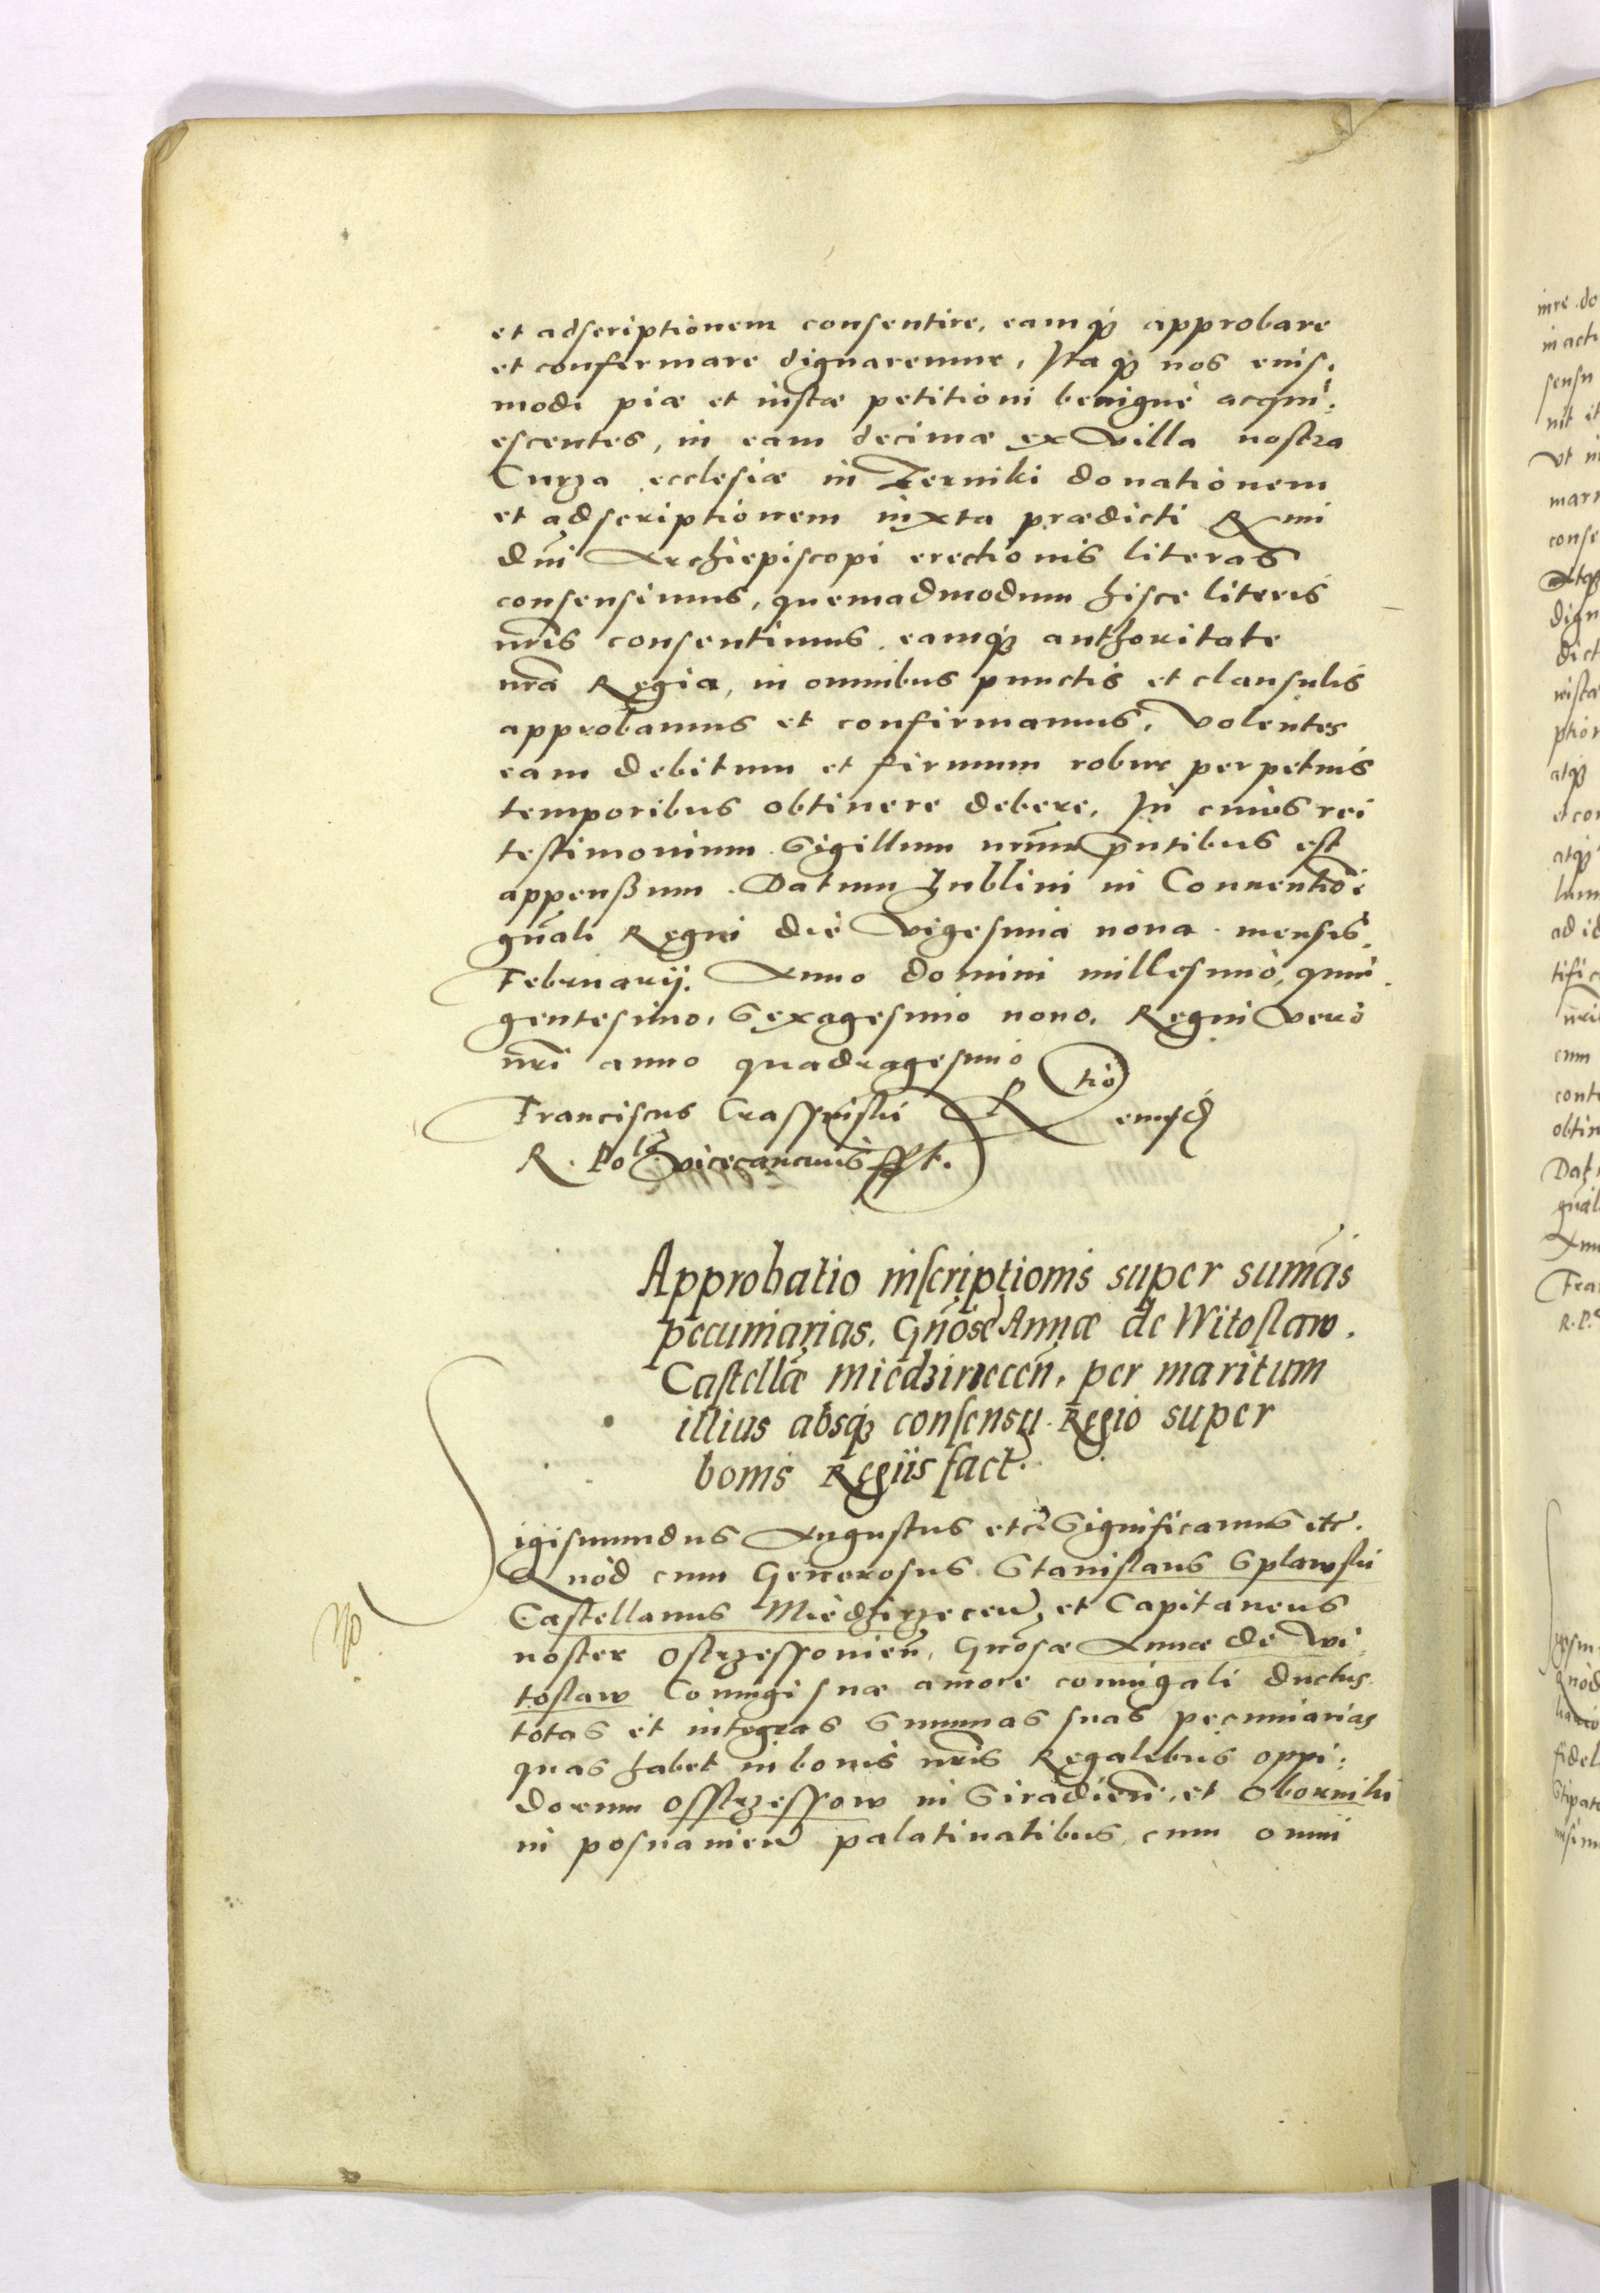 et adscriptionem consentire, eamq₃ approbare
et confirmare dignaremur, Itaq₃ nos eius,
modi piæ et iustæ petitioni benignè acqui:
escentes, in eam decimæ ex villa nostra
Curza ecclesiæ in Zerniki donationem
et adscriptionem iuxta prædicti Rmi
dni Archiepiscopi erectionis literas
consensimus, quemadmodum hisce literis
nris consentimus. eamq₃ authoritate
nra Regia, in omnibus punctis et clausulis
approbamus et confirmamus, volentes
eam debitum et firmum robur perpetuis
temporibus obtinere debere. In cuius rei
testimonium Sigillum nrum pntibus est
appensum. Datum Lublini in Conuentione
gnali Regni die vigesima nona mensis
Februarij. Anno domini millesimo, quin
gentesimo, Sexagesimo nono, Regni vero
nri anno quadragesimo
Franciscus Crassinski R tio eiusd
R. Pol. vicecancrius sst.
Approbatio inscriptionis super summas
pecuniarias. Gnosæ Annæ de Witoslaw.
Castellæ miedzirzecen, per maritum
illius absq₃ consensu Regio super
bonis Regiis fact.
Sigismundus Augustus etc. Significamus etc.
Quòd cum Generosus Stanislaus Splawski
Castellanus Miedzirzecen, et Capitaneus
noster Ostrzessouien, Gnosæ Annæ de Wi
toslaw Coniugi suæ amore coniugali ductus
totas et integras Summas suas pecuniarias
quas habet in bonis nris Regalibus oppi:
dorum Osstrzessow in Siradien, et Oborniki
in posnanien palatinatibus, cum omni